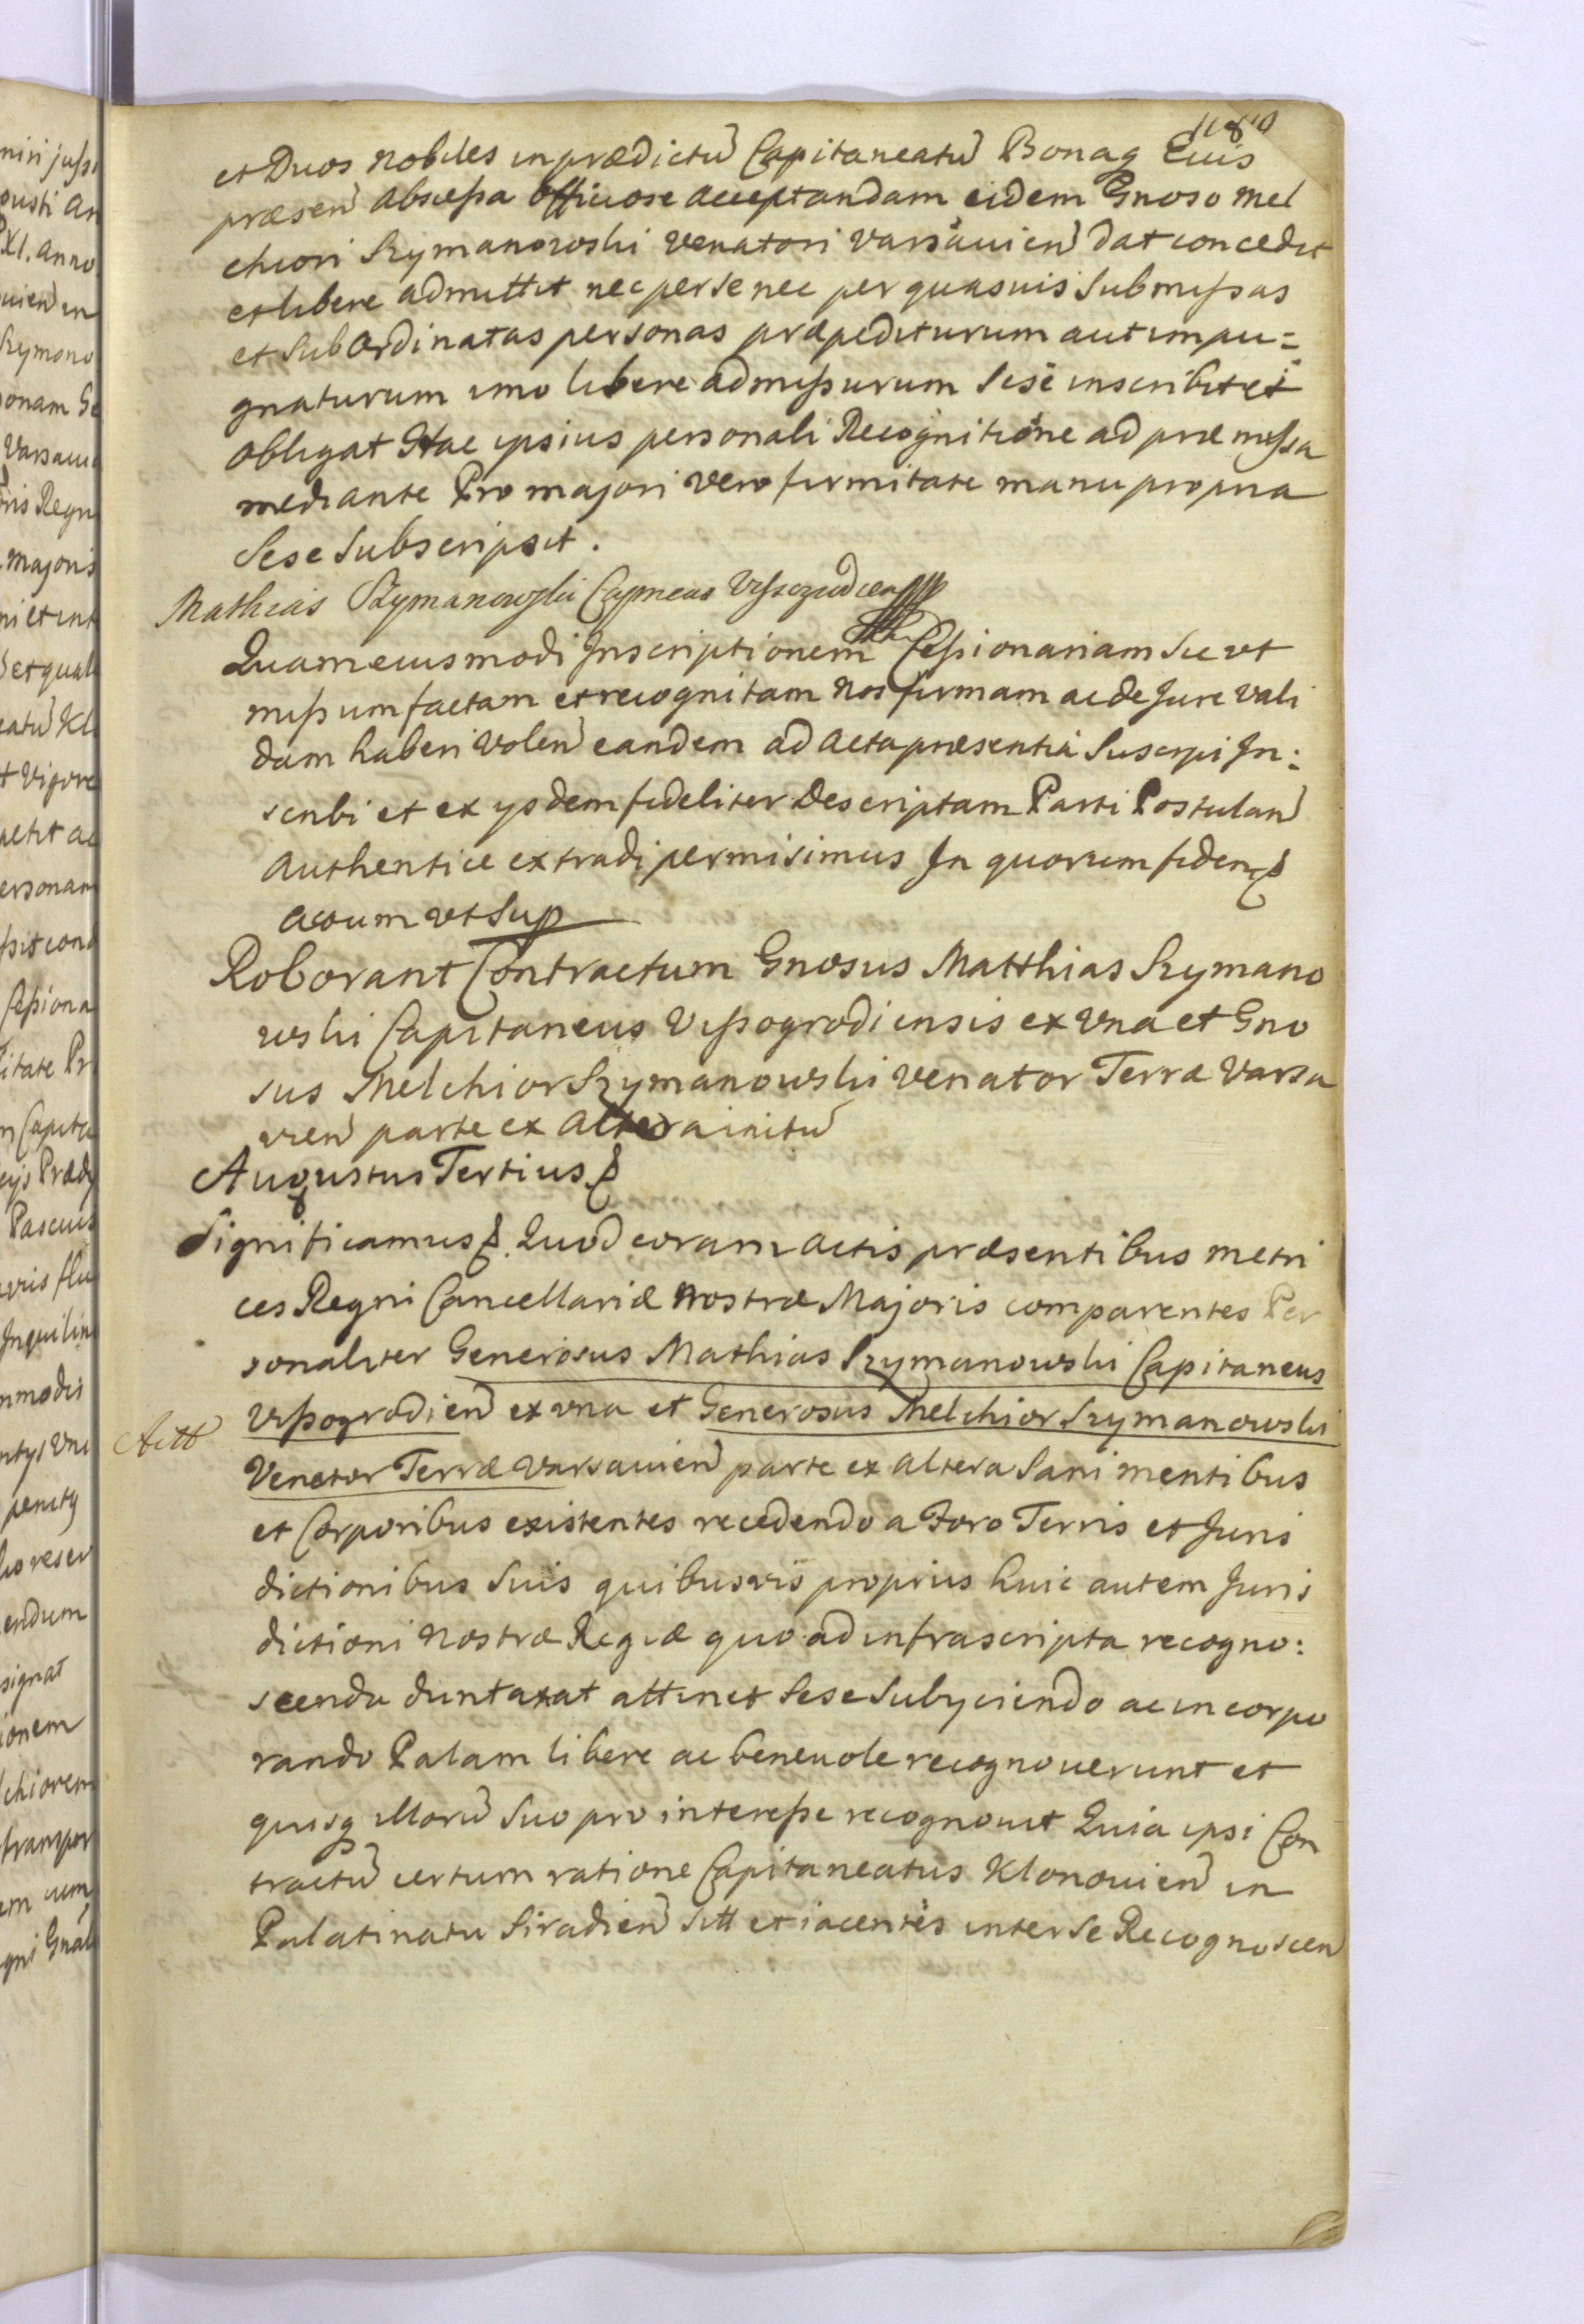 et Duos nobiles in prædictũ Capitaneatũ Bonaq Eius
præseñ abscessa officiose acceptandam eidem Gnoso Mel
chiori Szymanowski Venatori Varsauieñ dat concedit
et libere admittit nec per se nec per quasuis Submissas
et SubOrdinatas personas præpediturum aut impu=
gnaturum imo libere admissurum Sese inscribit et
obligat Hac ipsius personali Recognitione ad præmissa
mediante Pro majori Vero firmitate manu propria
Sese Subscripsit.
Mathias Szymanowski
Quam eiusmodi Inscriptionem Cessionariam Sic ut
missum factam et recognitam nos firmam ac de Jure Vali
dam haberi Voleñ eandem ad Acta præsentia Suscipi In:
scribi et ex ysdem fideliter Descriptam Parti Postulañ
Authentice extradi permisimus In quorum fidem
Actum ut Sup
Roborant Contractum Gnosus Matthias Szymano
wski Capitaneus Vissogrodiensis ex Vna et Gno
sus Melchior Szymanowski Venator Terræ Varsa
vieñ parte ex Altera initũ
Augustus Tertius
Significamus Quod coram Actis præsentibus Metri
ces Regni Cancellariæ Nostræ Majoris comparentes Per
sonaliter Generosus Mathias Szymanowski Capitaneus
Vissogrodieñ ex vna et Generosus Melchior Szymanowski
Venator Terræ Varsauieñ parte ex altera Sani mentibus
et Corporibus existentes recedendo a Foro Terris et Juris
dictionibus Suis quibusvis proprius huic autem Juris
dictioni Nostræ Regiæ quo ad infrascripta recogno:
scenda duntaxat attinet Sese Subyciendo ac incorpo
rando Palam libere ac beneuole recognouerunt et
quisq illorũ Suo pro interesse recognouit Quia ipsi Con
tractũ certum ratione Capitaneatus Klonouieñ in
Palatinatu Siradieñ Sitt et iacentis inter Se Recognosceñ